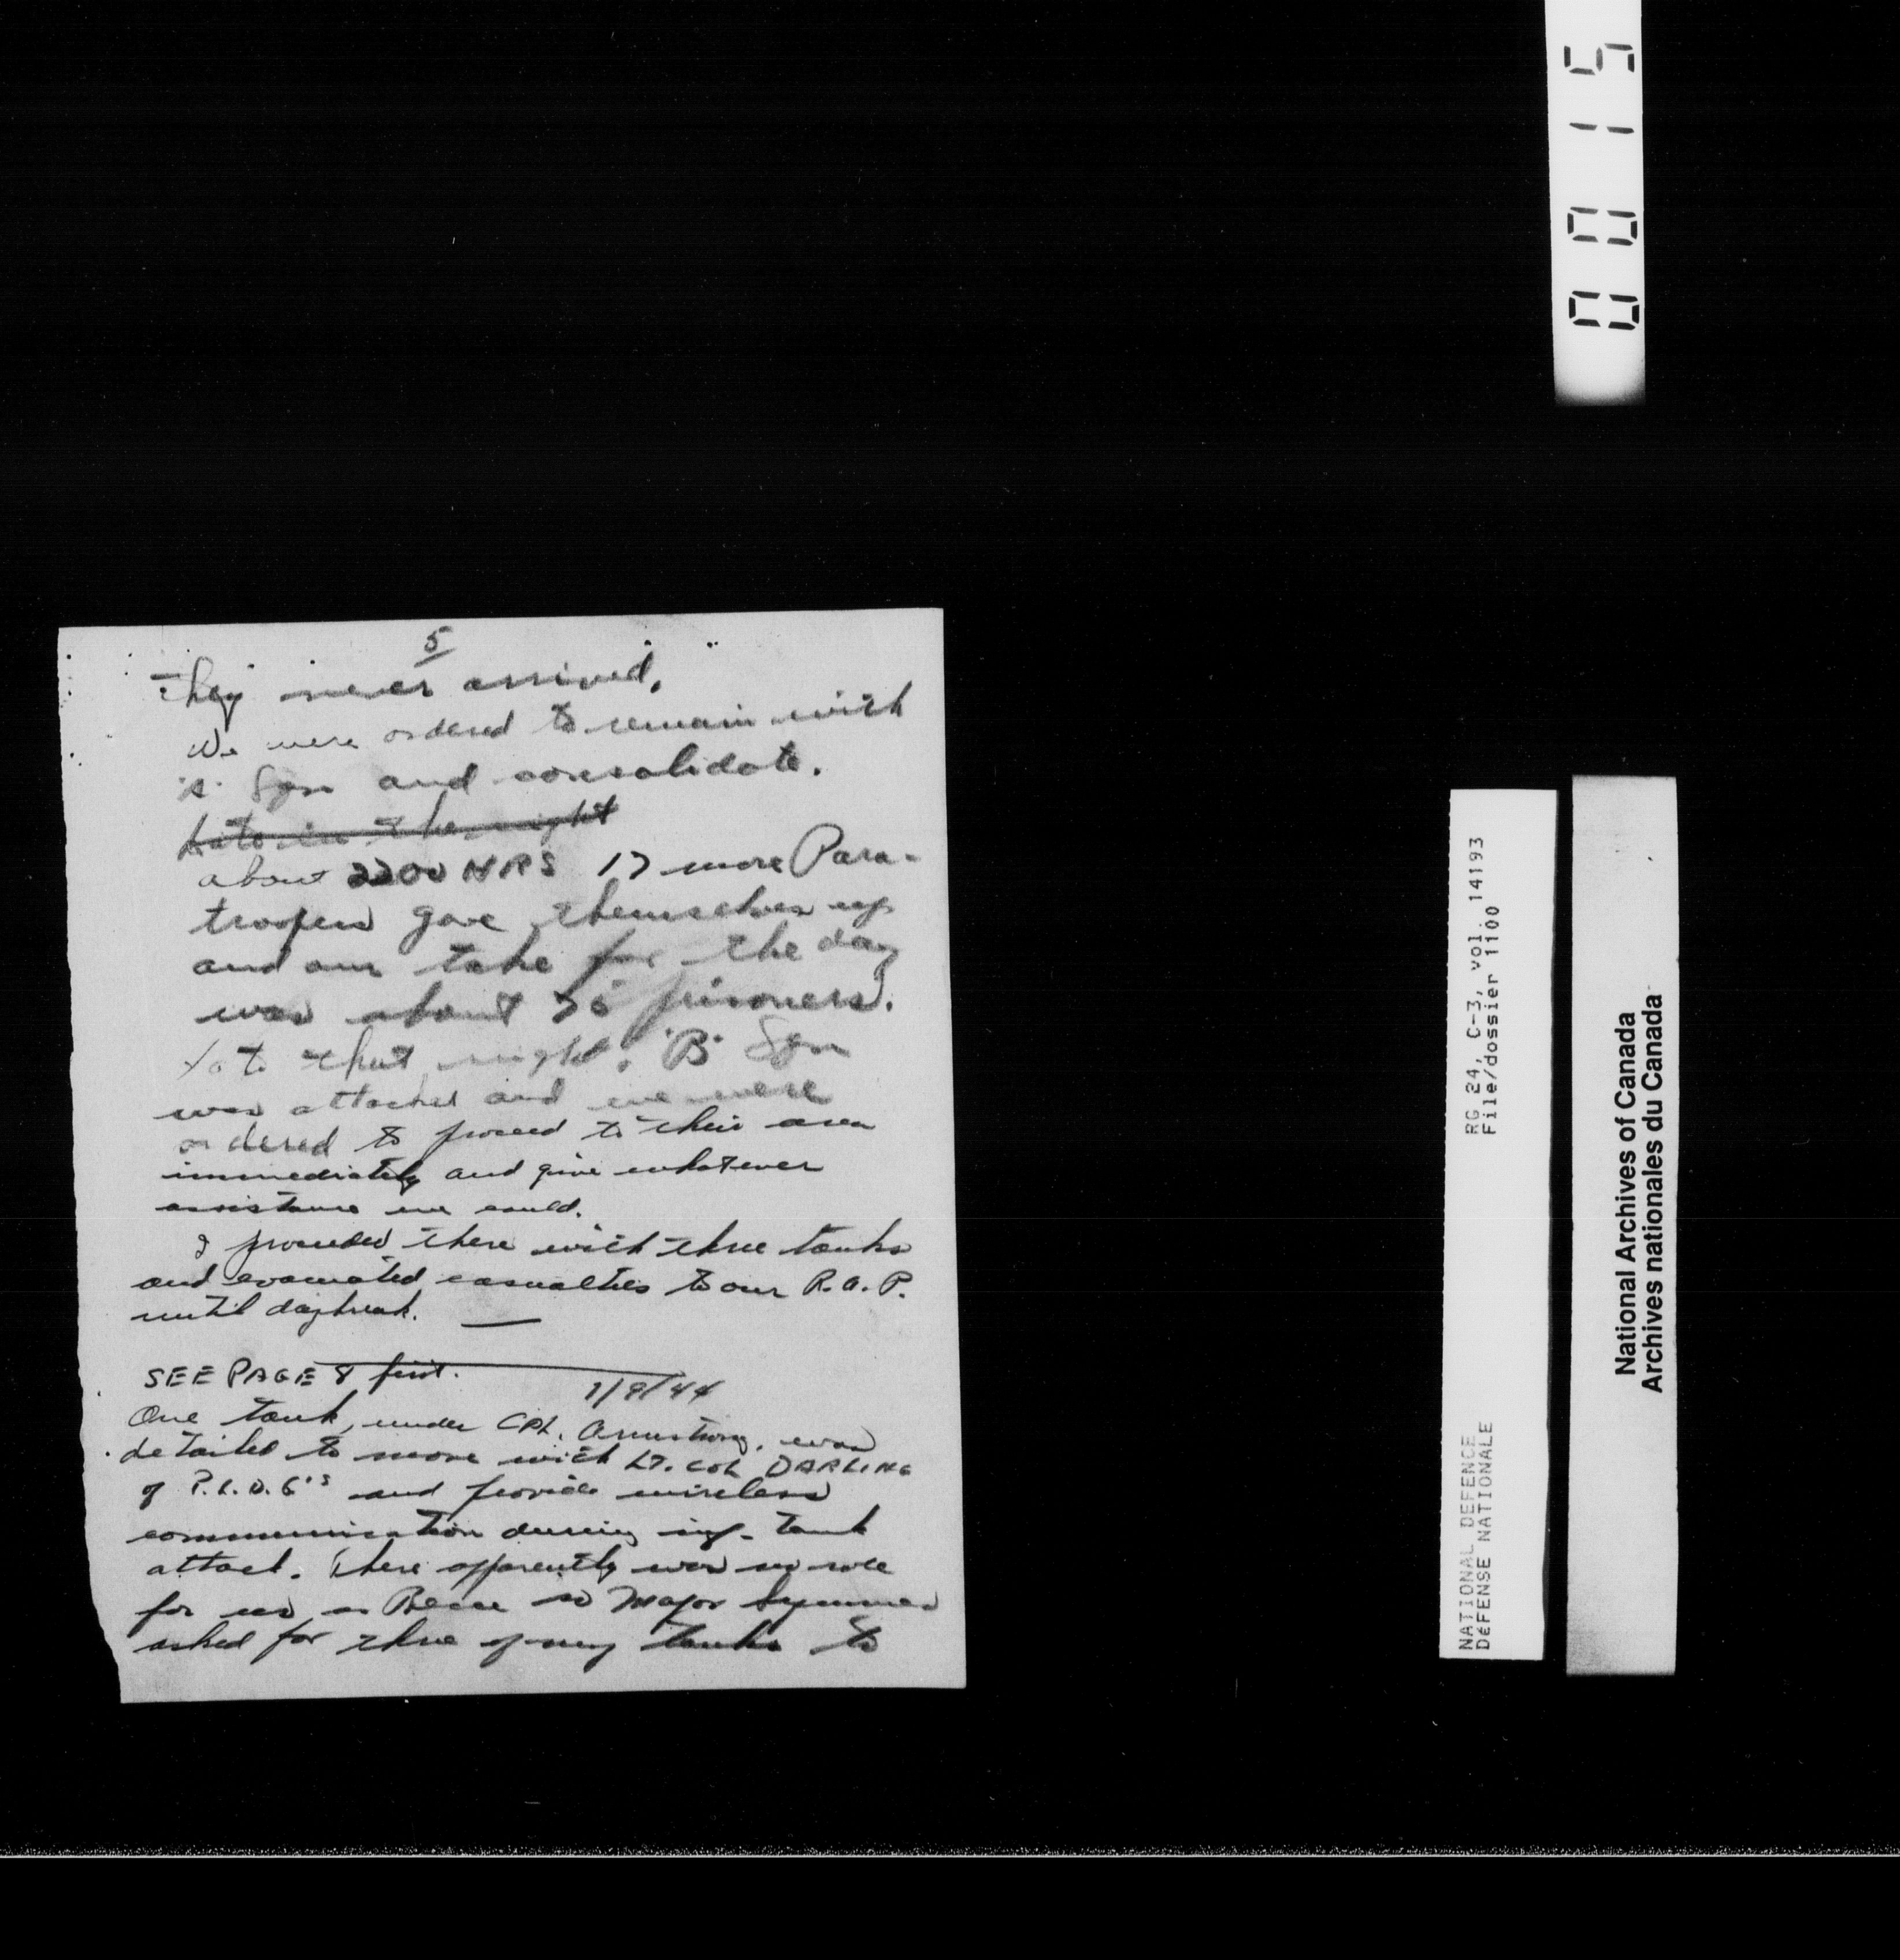 5
They never arrived.
We were ordered to remain with
'A' Sqn and consolidate.
Late in the night
about 2200 HRS 17 more Para-
troopers gave themselves up
and our take for the day
was about 75 prisoners.
Late that night, 'B' Sqn
was attacked and we were
ordered to proceed to their area
immediately and give whatever
assistance we could.
I proceeded there with three tanks
and evacuated casualties to our R.A.P.
until daybreak. —
SEE PAGE 8 first.
1/9/44
One tank, under CPL. Armstrong, was
detailed to move with LT. COL DARLING
of P.L.D.G's and provide wireless
communication during inf- tank
attack. There apparently was no role
for us as Recce so Major
asked for three of my tanks to
0015
RG 24, C-3, vol. 14193
File/dossier 1100
NATIONAL DEFENCE
DÉFENSE NATIONALE
National Archives of Canada
Archives nationales du Canada